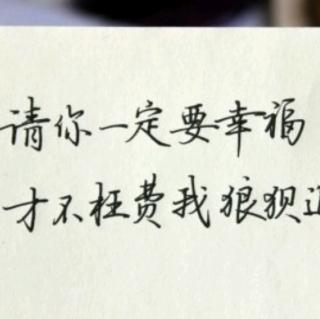 请你一定要幸福
才不枉费我狼狈